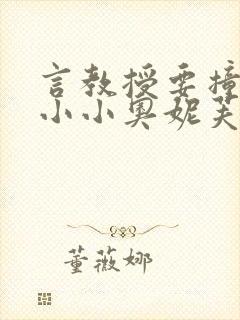 言教授要撞
小小奥妮芙
董薇娜